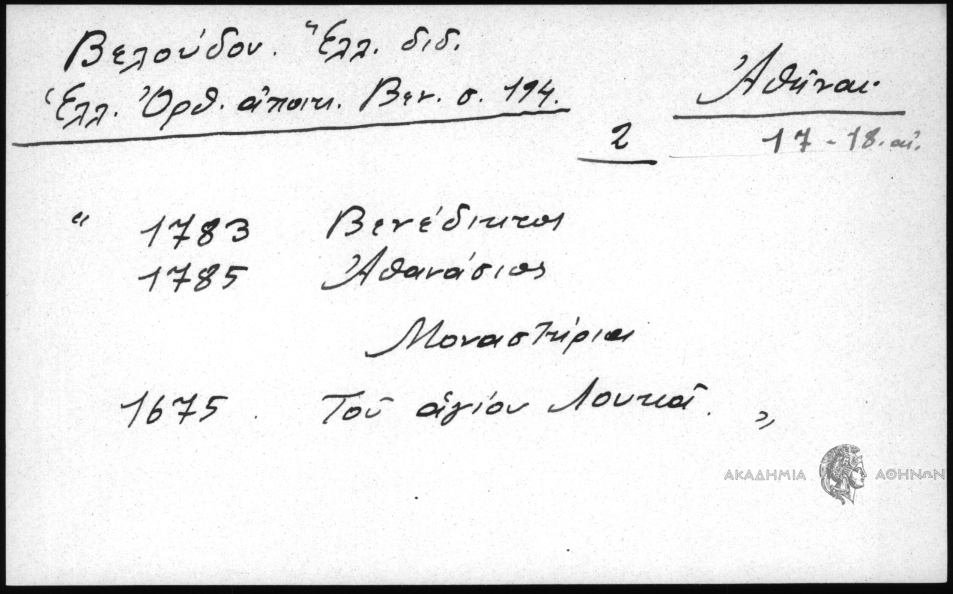 Βελούδου. Ἑλλ. διδ.
Ἑλλ. Ὀρθ. ἀποικ. Βεν. σ. 194.
Ἀθῆναι
2
17 - 18. αἰ.
" 1783 Βενέδικτος
1785 Ἀθανάσιος
Μοναστήρια
1675. Τοῦ ἁγίου Λουκᾶ. "
ΑΚΑΔΗΜΙΑ ΑΘΗΝΩΝ